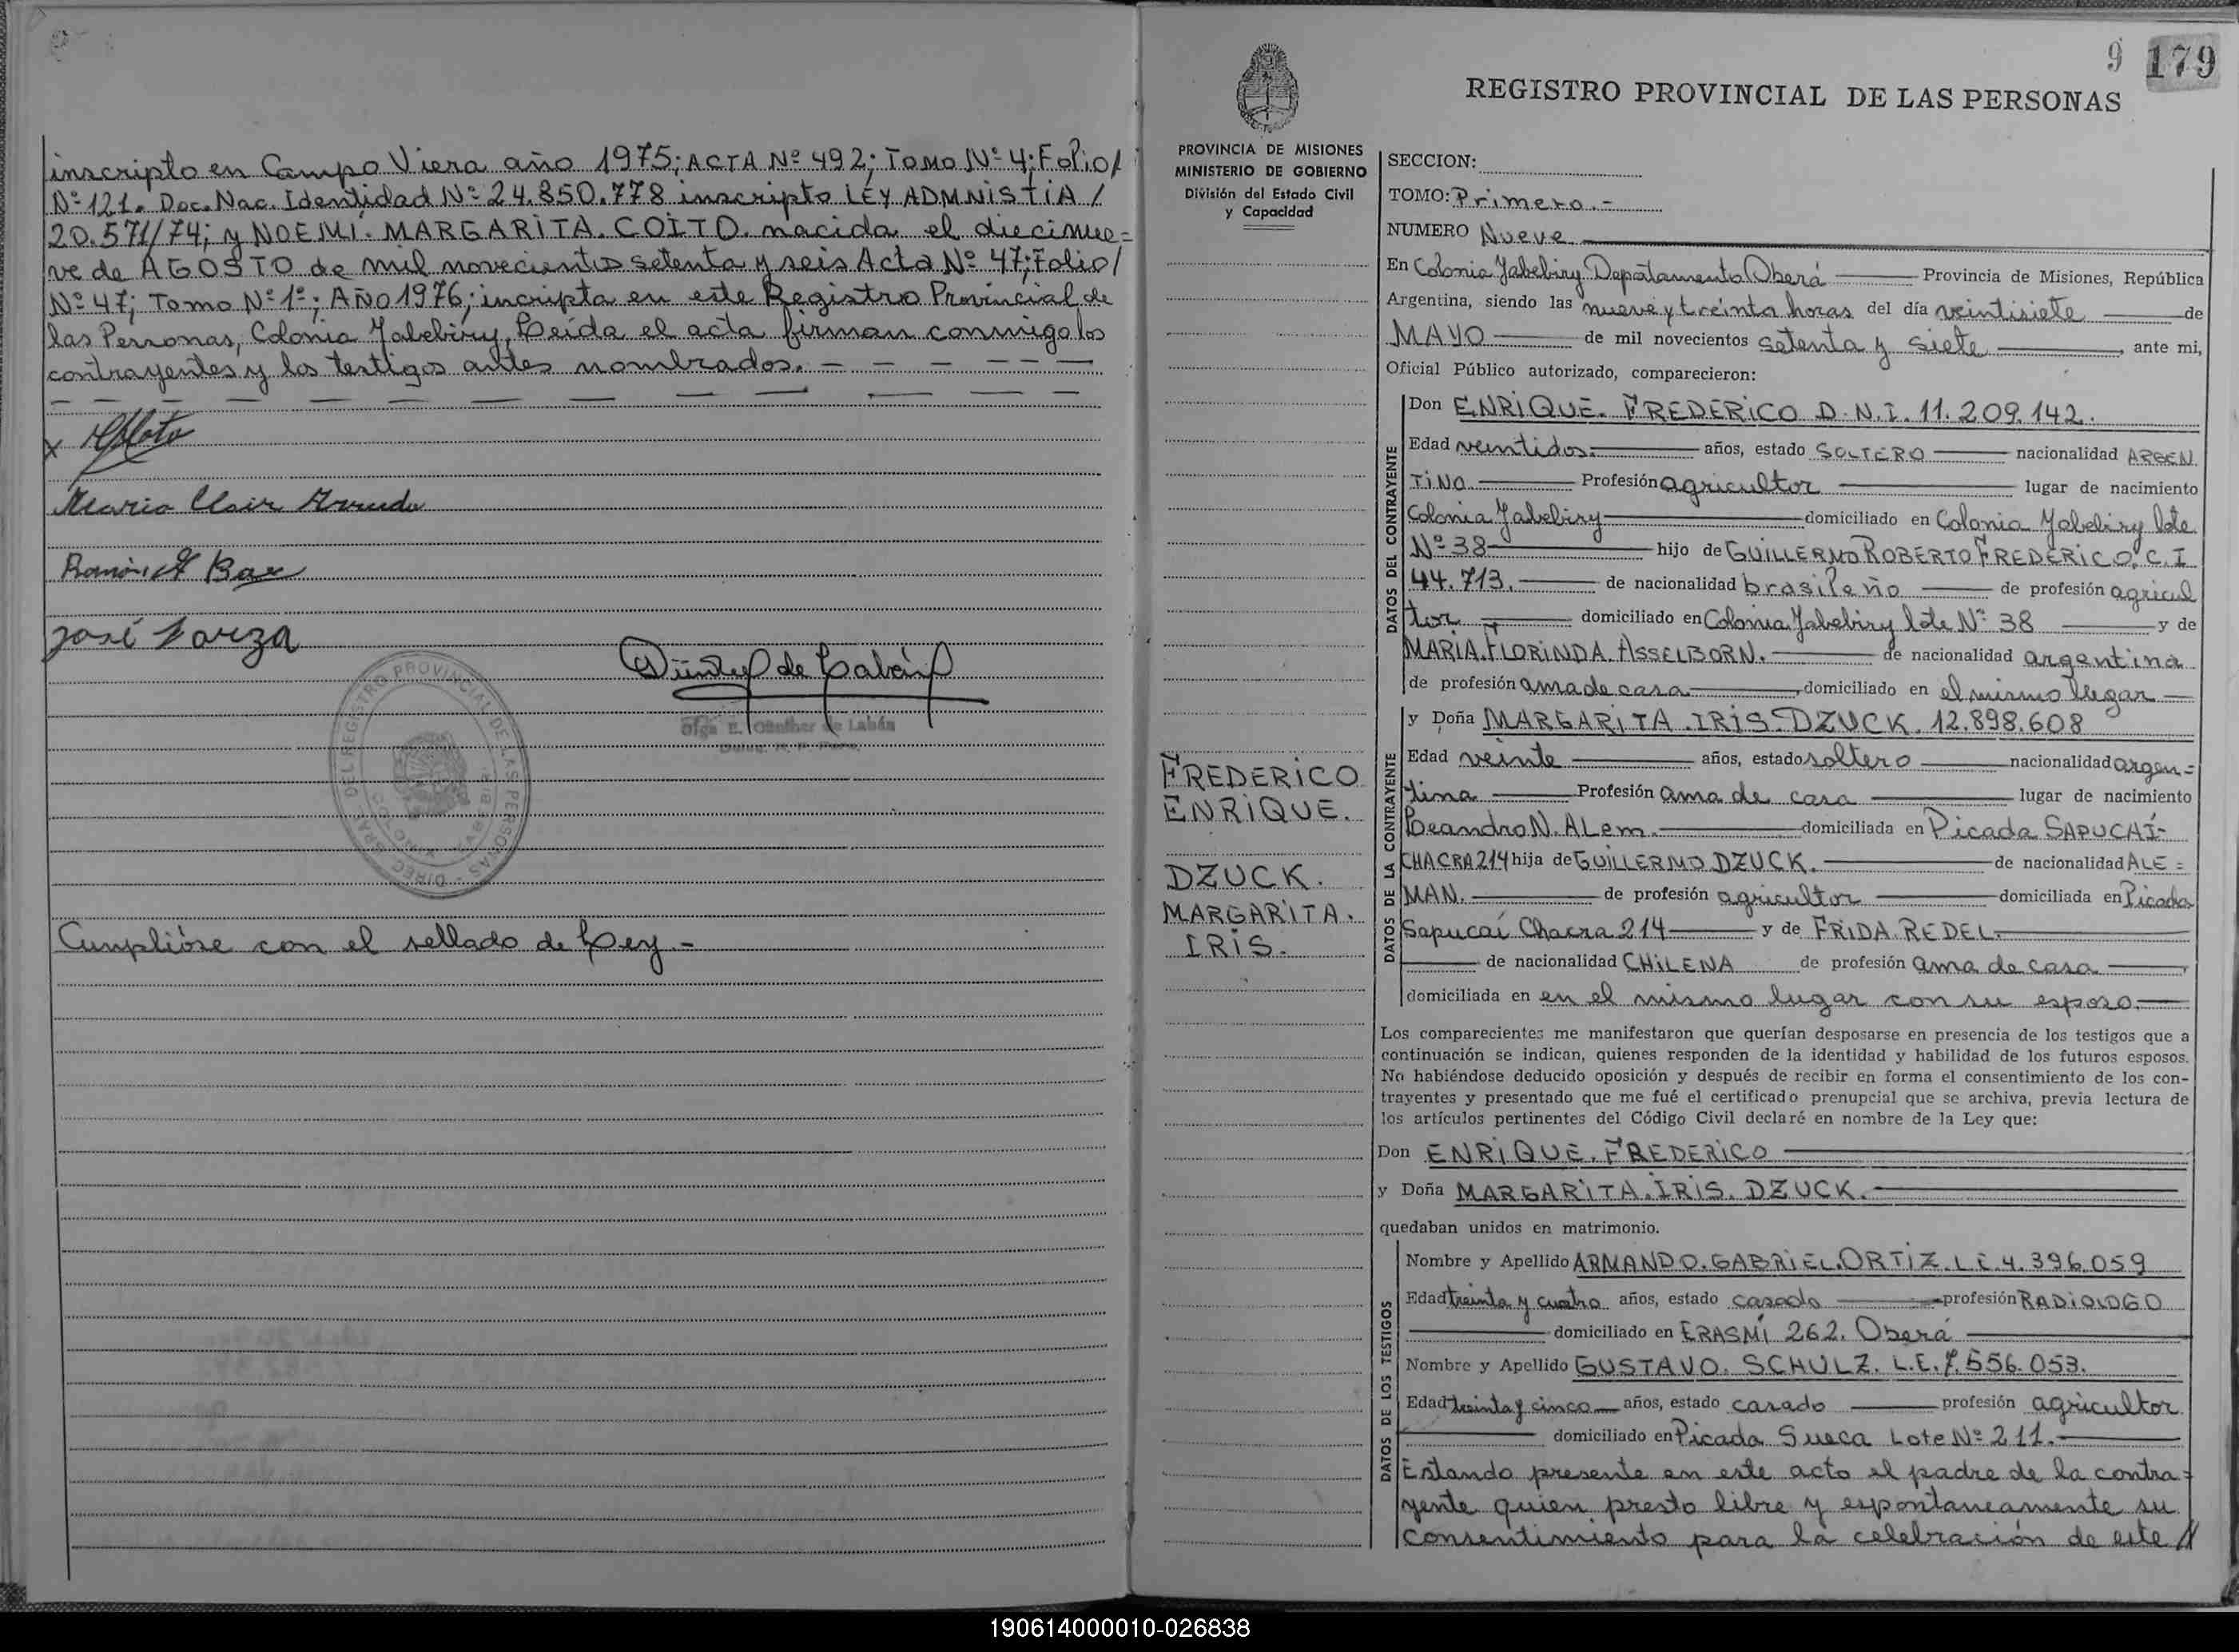 inscripto en Campo Viera año 1975; ACTA Nº 492; Tomo Nº 4; Folio/
Nº 121. Doc. Nac. Identidad Nº 24.850.778 inscripto LEY ADMNISTIA /
20.571/74; y NOEMI. MARGARITA. COITO. nacida el diecinue=
ve de AGOSTO de mil novecientos setenta y seis Acta Nº 47; Folio/
Nº 47; Tomo Nº 1º; AÑO 1976; incripta en este Registro Provincial de
las Personas, Colonia Yabebiry, Leída el acta firman conmigo los
contrayentes y los testigos antes nombrados. - - - - - -
José Garza
DIREC. GRAL. DEL REGISTRO PROVINCIAL DE LAS PERSONAS
COLONIA YABEBIRY
Olga E. Günther de Labán
Cumplióse con el sellado de Ley -
9 179
REGISTRO PROVINCIAL DE LAS PERSONAS
PROVINCIA DE MISIONES
MINISTERIO DE GOBIERNO
División del Estado Civil
y Capacidad
FREDERICO
ENRIQUE.
DZUCK.
MARGARITA.
IRIS.
SECCION:
TOMO: Primero.-
NUMERO Nueve
En Colonia Yabebiry Depatamento Oberá Provincia de Misiones, República
Argentina, siendo las nueve y treinta horas del día veintisiete de
MAYO de mil novecientos setenta y siete, ante mi,
Oficial Público autorizado, comparecieron:
DATOS DEL CONTRAYENTE
Don ENRIQUE. FREDERICO D.N.I. 11.209.142.
Edad veintidos. años, estado SOLTERO nacionalidad ARGEN
TINO Profesión agricultor lugar de nacimiento
Colonia Yabebiry domiciliado en Colonia Yabebiry lote
Nº 38 hijo de GUILLERMO ROBERTO FREDERICO. C.I
44.713. de nacionalidad brasileño de profesión agricul
tor domiciliado en Colonia Yabebiry lote Nº 38 y de
MARIA. FLORINDA. ASSELBORN. de nacionalidad argentina
de profesión ama de casa, domiciliado en el mismo lugar
DATOS DE LA CONTRAYENTE
y Doña MARGARITA. IRIS. DZUCK. 12.898.608
Edad veinte años, estado soltero nacionalidad argen=
tina Profesión ama de casa lugar de nacimiento
Leandro N. ALem. domiciliada en Picada SAPUCAÍ-
CHACRA 214 hija de GUILLERMO DZUCK. de nacionalidad ALE=
MAN. de profesión agricultor domiciliada en Picada
Sapucaí Chacra 214 y de FRIDA. REDEL.
de nacionalidad CHILENA de profesión ama de casa,
domiciliada en en el mismo lugar con su esposo.
Los comparecientes me manifestaron que querían desposarse en presencia de los testigos que a
continuación se indican, quienes responden de la identidad y habilidad de los futuros esposos.
No habiéndose deducido oposición y después de recibir en forma el consentimiento de los con-
trayentes y presentado que me fué el certificado prenupcial que se archiva, previa lectura de
los artículos pertinentes del Código Civil declaré en nombre de la Ley que:
Don ENRIQUE. FREDERICO
y Doña MARGARITA. IRIS. DZUCK.
quedaban unidos en matrimonio.
DATOS DE LOS TESTIGOS
Nombre y Apellido ARMANDO. GABRIEL. ORTIZ. L.E. 4.396.059
Edad treinta y cuatro años, estado casado profesión RADIOLOGO
domiciliado en ERASMI 262. Oberá
Nombre y Apellido GUSTAVO. SCHULZ. L.E. 7.556.053.
Edad treinta y cinco años, estado casado profesión agricultor
domiciliado en Picada Sueca Lote Nº 211.
Estando presente en este acto el padre de la contra=
yente quien presto libre y espontaneamente su
consentimiento para la celebración de este //
190614000010-026838